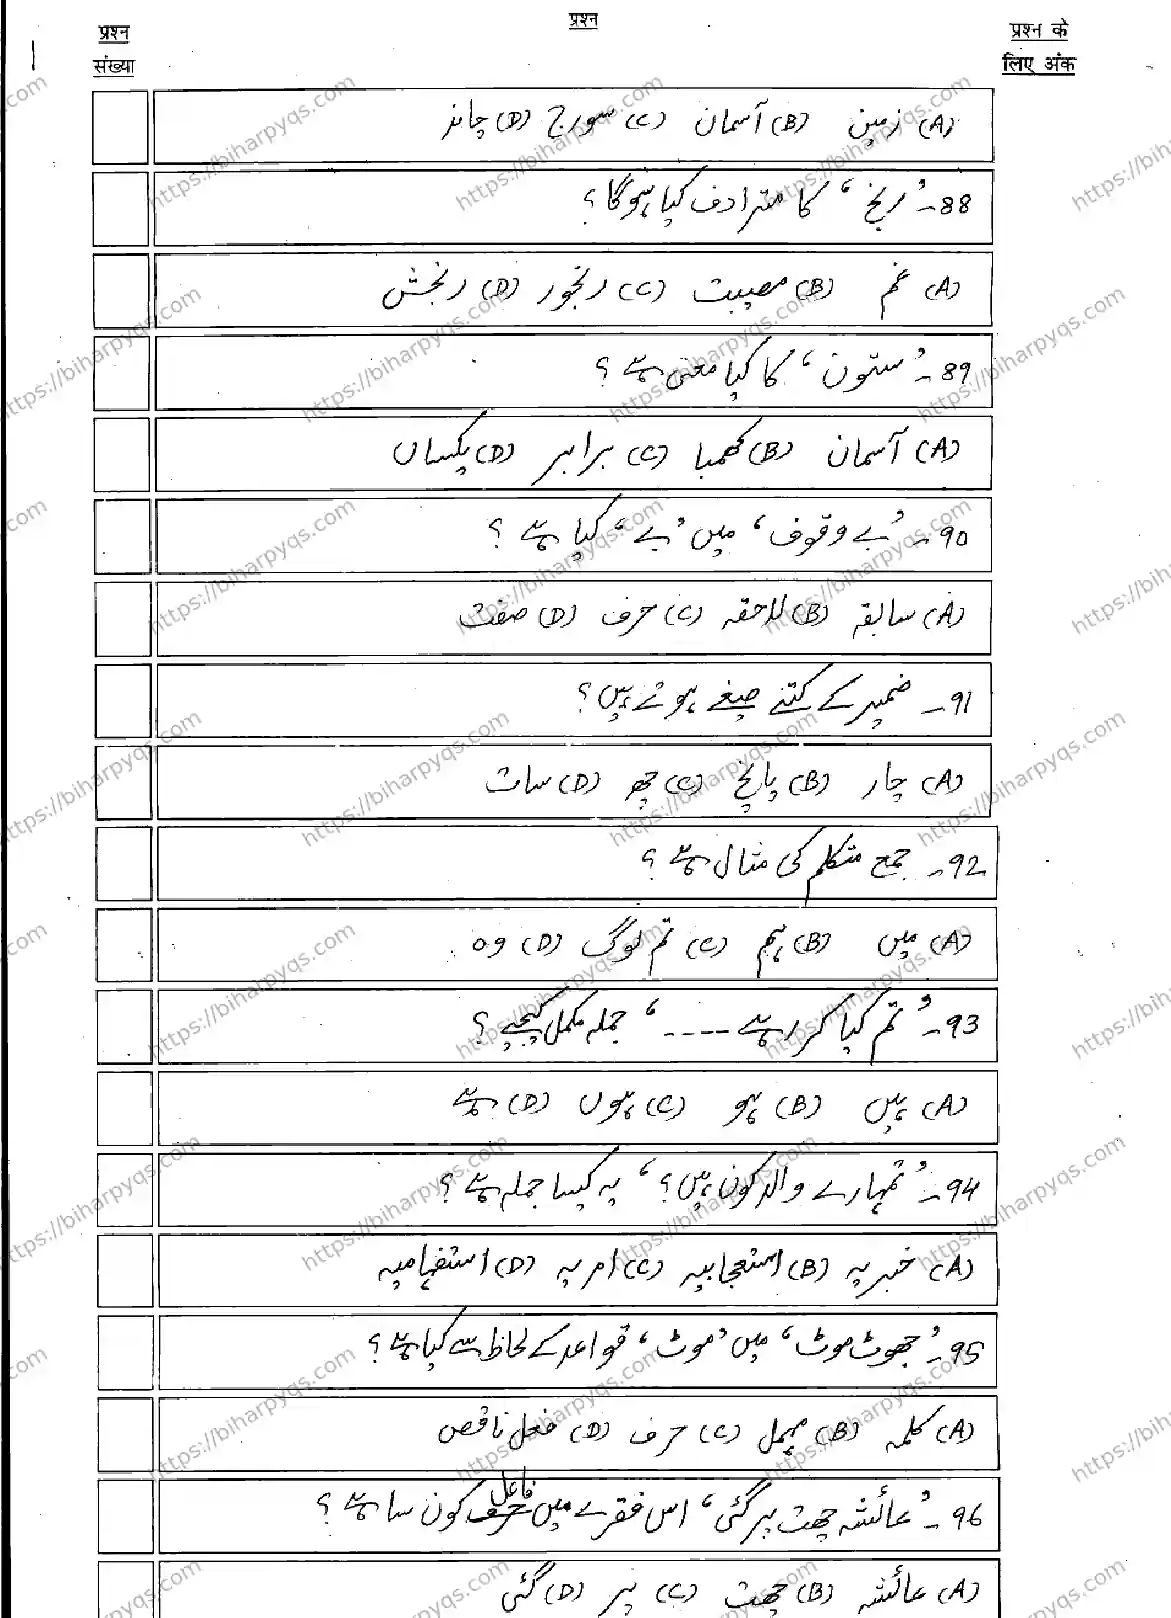 प्रश्न संख्या
प्रश्न
प्रश्न के लिए अंक
(A) زمین (B) آسمان (C) سورج (D) چاند
88۔ ’رنج‘ کا مترادف کیا ہوگا؟
(A) غم (B) مصیبت (C) رنجور (D) رنجش
89۔ ’ستون‘ کا کیا معنی ہے؟
(A) آسمان (B) کھمبا (C) برابر (D) یکساں
90۔ ’بے وقوف‘ میں ’بے‘ کیا ہے؟
(A) سابقہ (B) لاحقہ (C) حرف (D) صفت
91۔ ضمیر کے کتنے صیغے ہوتے ہیں؟
(A) چار (B) پانچ (C) چھ (D) سات
92۔ جمع متکلم کی مثال ہے؟
(A) میں (B) ہم (C) تم لوگ (D) وہ
93۔ ’تم کیا کر رہے ----‘ جملہ مکمل کیجیے؟
(A) ہیں (B) ہو (C) ہوں (D) ہے
94۔ ’تمہارے والد کون ہیں؟‘ یہ کیسا جملہ ہے؟
(A) خبریہ (B) استعجابیہ (C) امریہ (D) استفہامیہ
95۔ ’جھوٹ موٹ‘ میں ’موٹ‘ قواعد کے لحاظ سے کیا ہے؟
(A) کلمہ (B) مہمل (C) حرف (D) فعل ناقص
96۔ ’عائشہ چھت پر گئی‘ اس فقرے میں فاعل کون سا ہے؟
(A) عائشہ (B) چھت (C) پر (D) گئی
https://biharpyqs.com